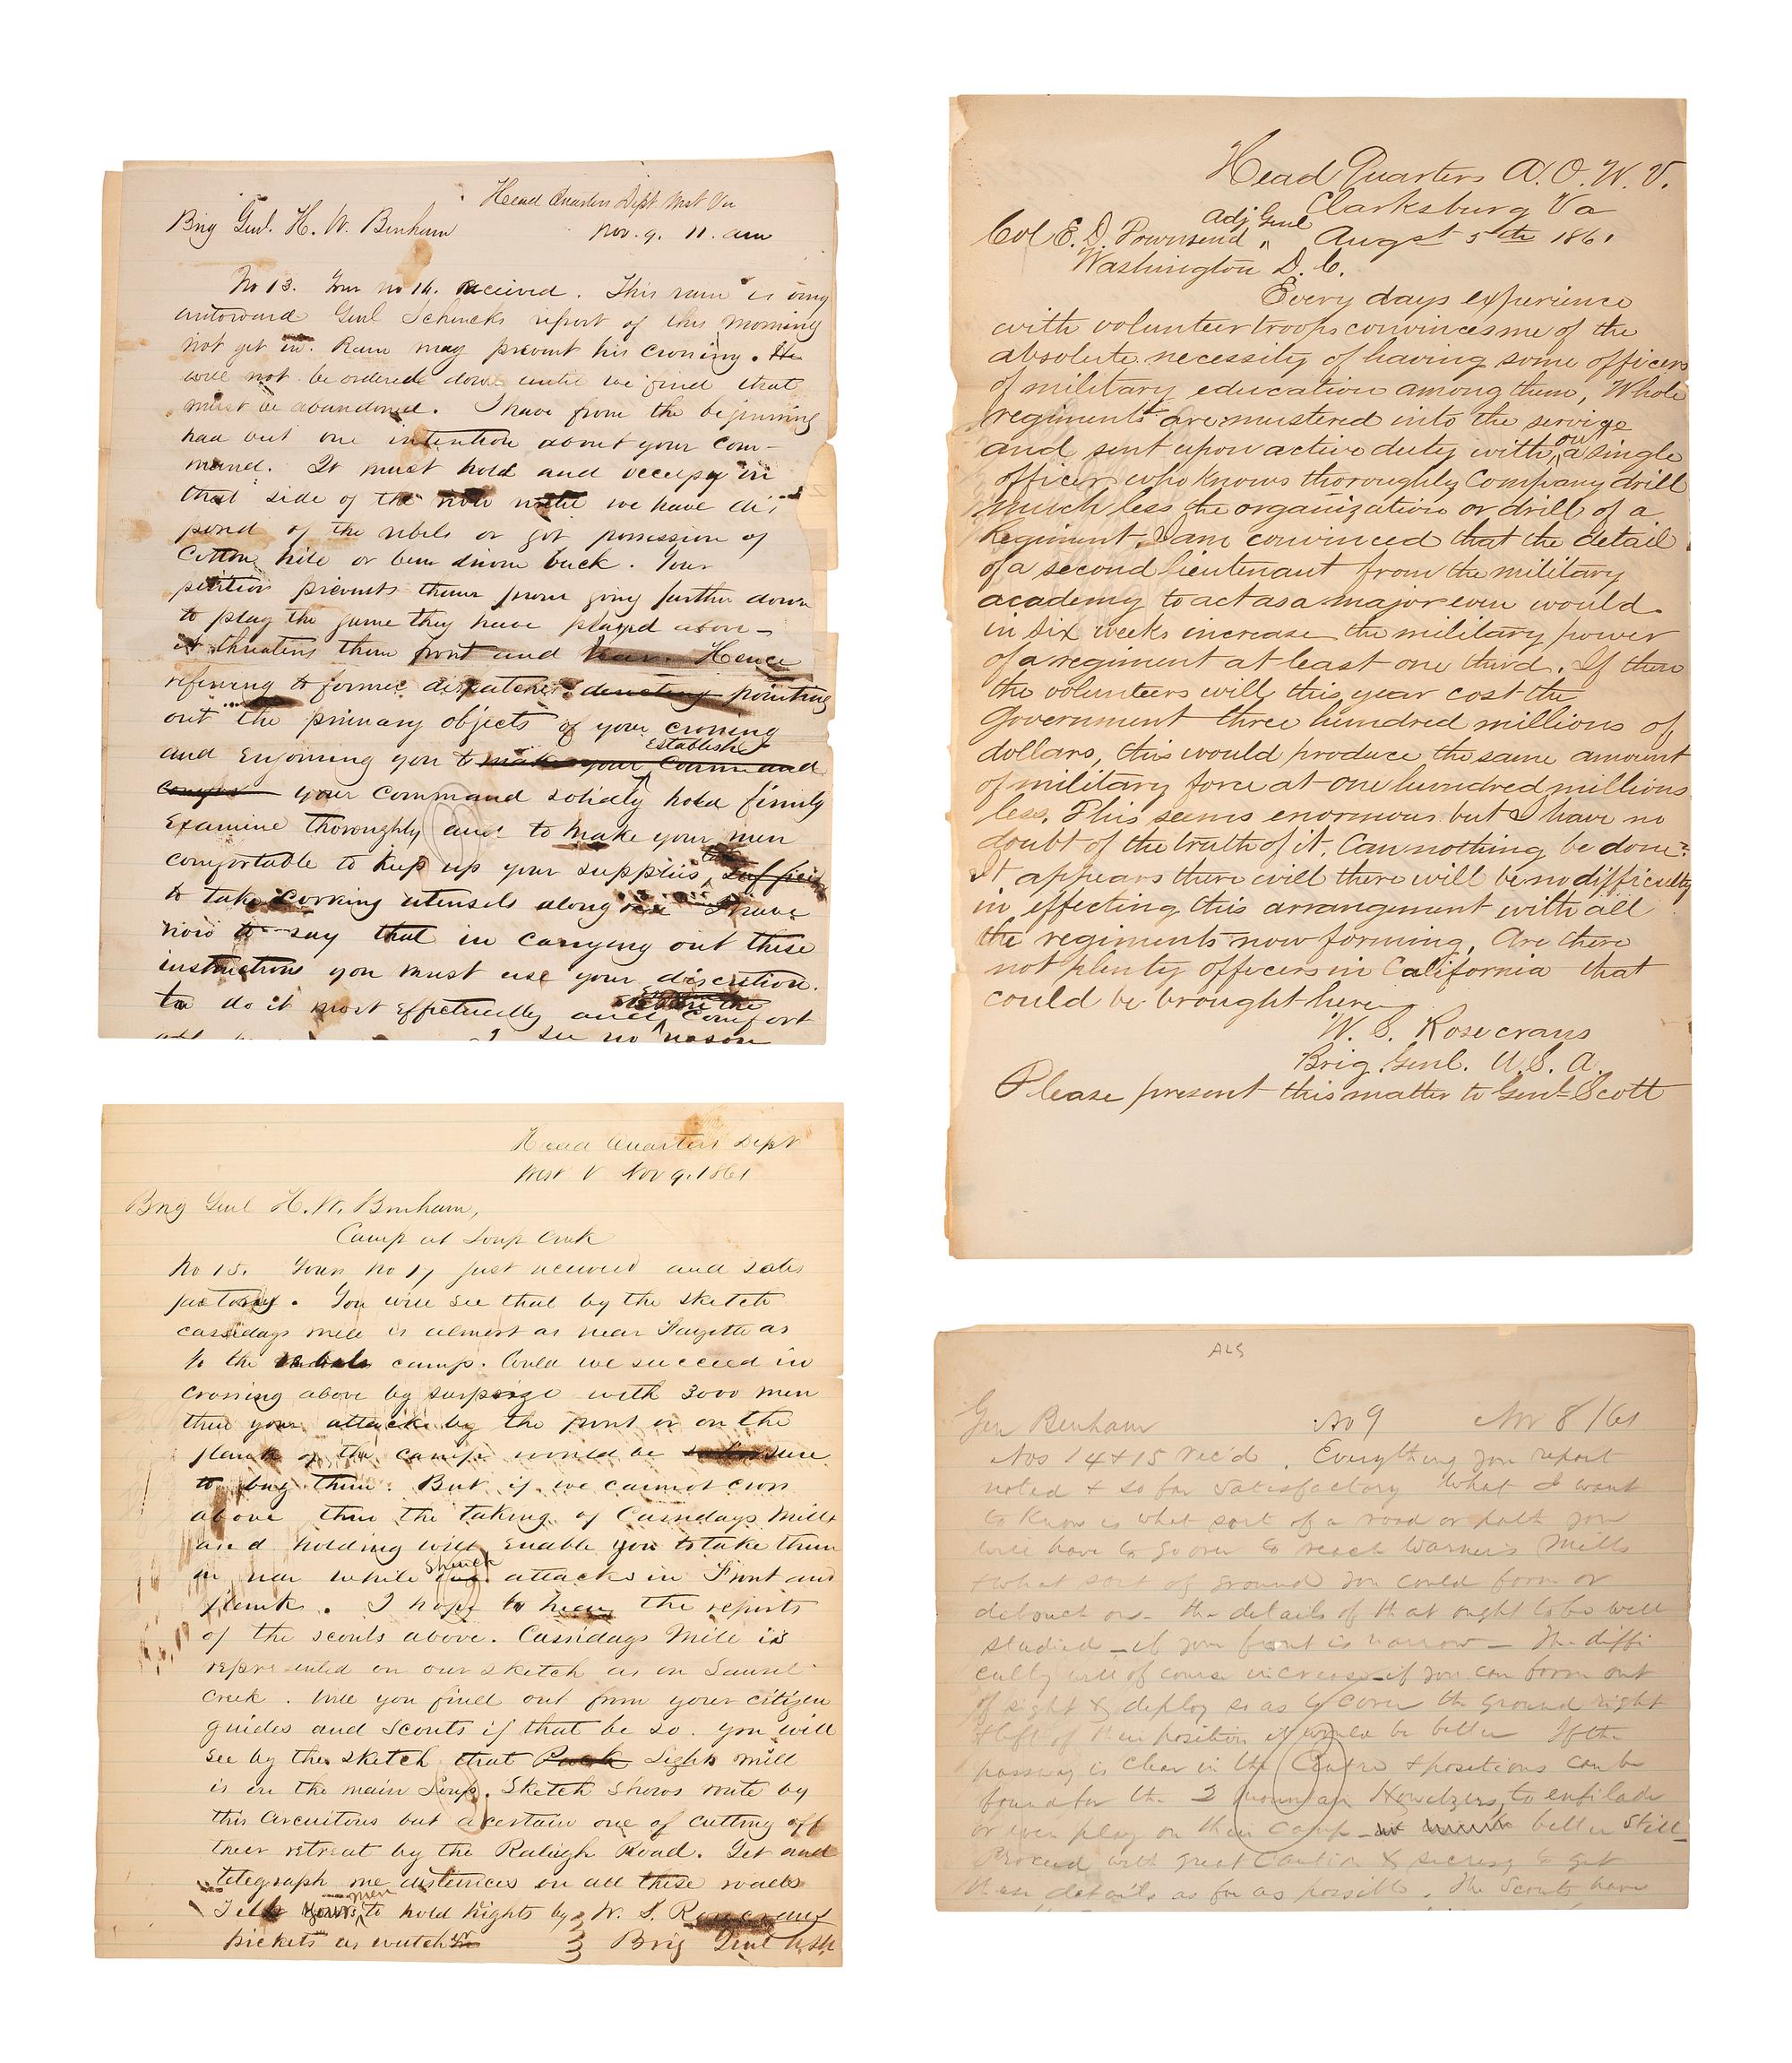 Head Quarters Dept West Va
Brig Genl. H. W. Benham Nov. 9. 11. am
No 13. Your no 16. received. This rain is very
untoward Genl Schencks report of this morning
not yet in. Rain may prevent his crossing. He
will not be ordered down until we find that
must be abandoned. I have from the beginning
had but one intention about your com-
mand. It must hold and occupy in
that side of the until we have dis
posed of the rebels or got possession of
Cotton hill or been driven back. Your
position prevents them from going further down
to play the game they have played above
it threatens them front and rear. Hence
refering to former dispatches pointing
out the primary objects of your crossing
and enjoining you to make your command
establish
your command solidly hold firmly
Examine thoroughly and to make your men
comfortable to keep up your supplies,
to take cooking utensils along I have
now to say that in carrying out these
instructions you must use your discretion.
to do it most effectually and comfort
I see no reason
Head Quarters A. O. W. V.
Clarksburg Va
Adj Genl
Col E. D. Townsend ^ Augst 5th 1861
Washington D. C.
Every days experience
with volunteer troops convinces me of the
absolute necessity of having some officers
of military education among them, Whole
regiments are mustered into the service
and sent upon active duty with ^ a single
out
officer who knows thoroughly Company drill
much less the organization or drill of a
Regiment. I am convinced that the detail
of a second lieutenant from the military
academy to act as a major even would
in six weeks increase the military power
of a regiment at least one third. If then
the volunteers will this year cost the
Government three hundred millions of
dollars, this would produce the same amount
of military force at one hundred millions
less. This seems enormous but I have no
doubt of the truth of it. Can nothing be done?
It appears there will there will be no difficulty
in effecting this arrangement with all
the regiments now forming. Are there
not plenty officers in California that
could be brought here
W. S. Rosecrans
Brig. Genl. U. S. A.
Please present this matter to Genl Scott
Head Quarters Dept
West V Nov 9. 1861
Brig Genl H. W. Benham,
Camp at Loup Creek
No 15. Your no 17 just received and satis
factory. You will see that by the sketch
cassidays mill is almost as near Fayette as
to the rebels camp. Could we succeed in
crossing above by surprize with 3000 men
then your attack by the front or on the
flank of the camp would be sure
to bag them. But if we cannot cross
above then the taking of Cassidays Mills
and holding will enable you to take them
in rear while Schenck attacks in Front and
flank. I hope to hear the reports
of the scouts above. Cassidays Mill is
represented on our sketch as on Laurel
Creek. Will you find out from your citizen
guides and scouts if that be so. You will
see by the sketch that Light mill
is on the main Loup. Sketch shows route by
this circuitous but a certain one of cutting off
their retreat by the Raleigh Road. Get and
telegraph me distances on all these roads
men
Tell yours ^ to hold hights by W. S. Rosecrans
pickets as watch Brig Genl USA
ALS
Gen Benham No 9 Nov 8/61
Nos 14 + 15 rec'd. Everything you report
noted + so far satisfactory What I want
to know is what sort of a road or path you
will have to go over to reach Warner's Mills
+ what sort of ground you could form or
debouch on - the details of that ought to be well
studied - if your front is narrow - The diffi
culty will of course increase - if you can form out
of sight & deploy so as to cover the ground right
+ left of their position it would be better If the
passway is clear in the Centre + positions can be
found for the 2 mountain Howitzers, to enfilade
or even play on their camp - better still -
Proceed with great caution & secresy to get
these details as far as possible. The Scouts have